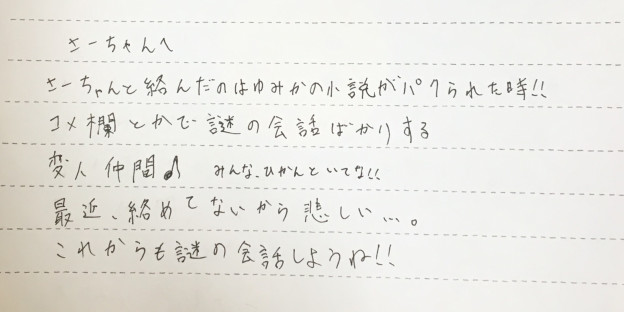 さーちゃんへ
さーちゃんと絡んだのはゆみかの小説がパクられた時!!
コメ欄とかで謎の会話ばかりする
変人仲間♪ みんな、ひかんといてな!!
最近、絡めてないから悲しい…。
これからも謎の会話しようね!!